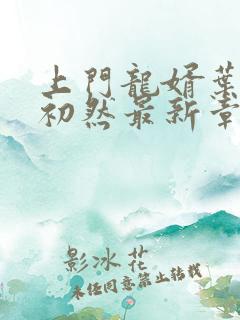 上門龍婿葉
初然最新章
影冰花
未經同意禁止轉載